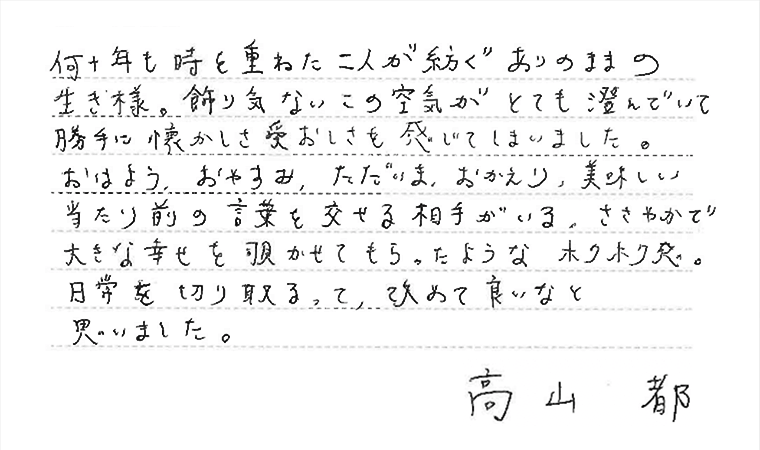 何十年も時を重ねた二人が紡ぐありのままの
生き様。飾り気ないこの空気がとても澄んでいて
勝手に懐かしさ愛おしさを感じてしまいました。
おはよう、おやすみ、ただいま、おかえり、美味しい
当たり前の言葉を交せる相手がいる。ささやかで
大きな幸せを覗かせてもらったようなホクホク感。
日常を切り取るって、改めて良いなと
思いました。
高山 都